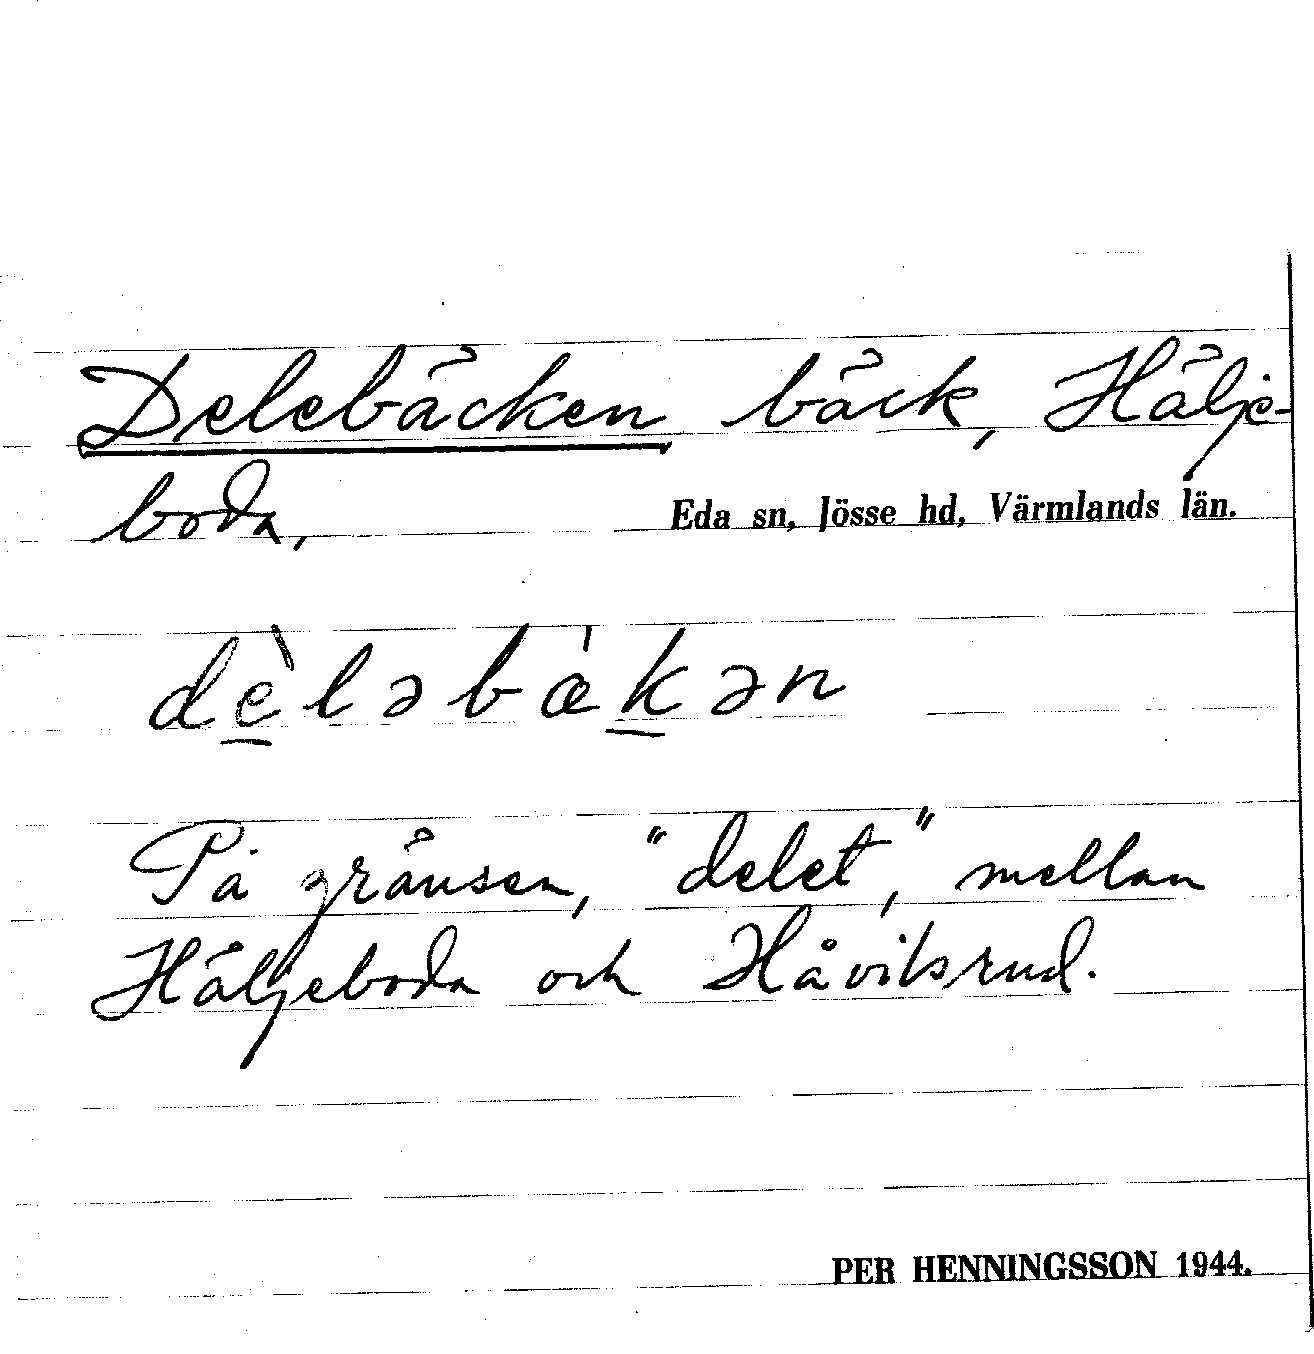 Delebäcken bäck, Hälje-
boda,
Eda sn, Jösse hd, Värmlands län.
dèləbæ̀kən
På gränsen, "delet," mellan
Häljeboda och Håvilsrud.
PER HENNINGSSON 1944.